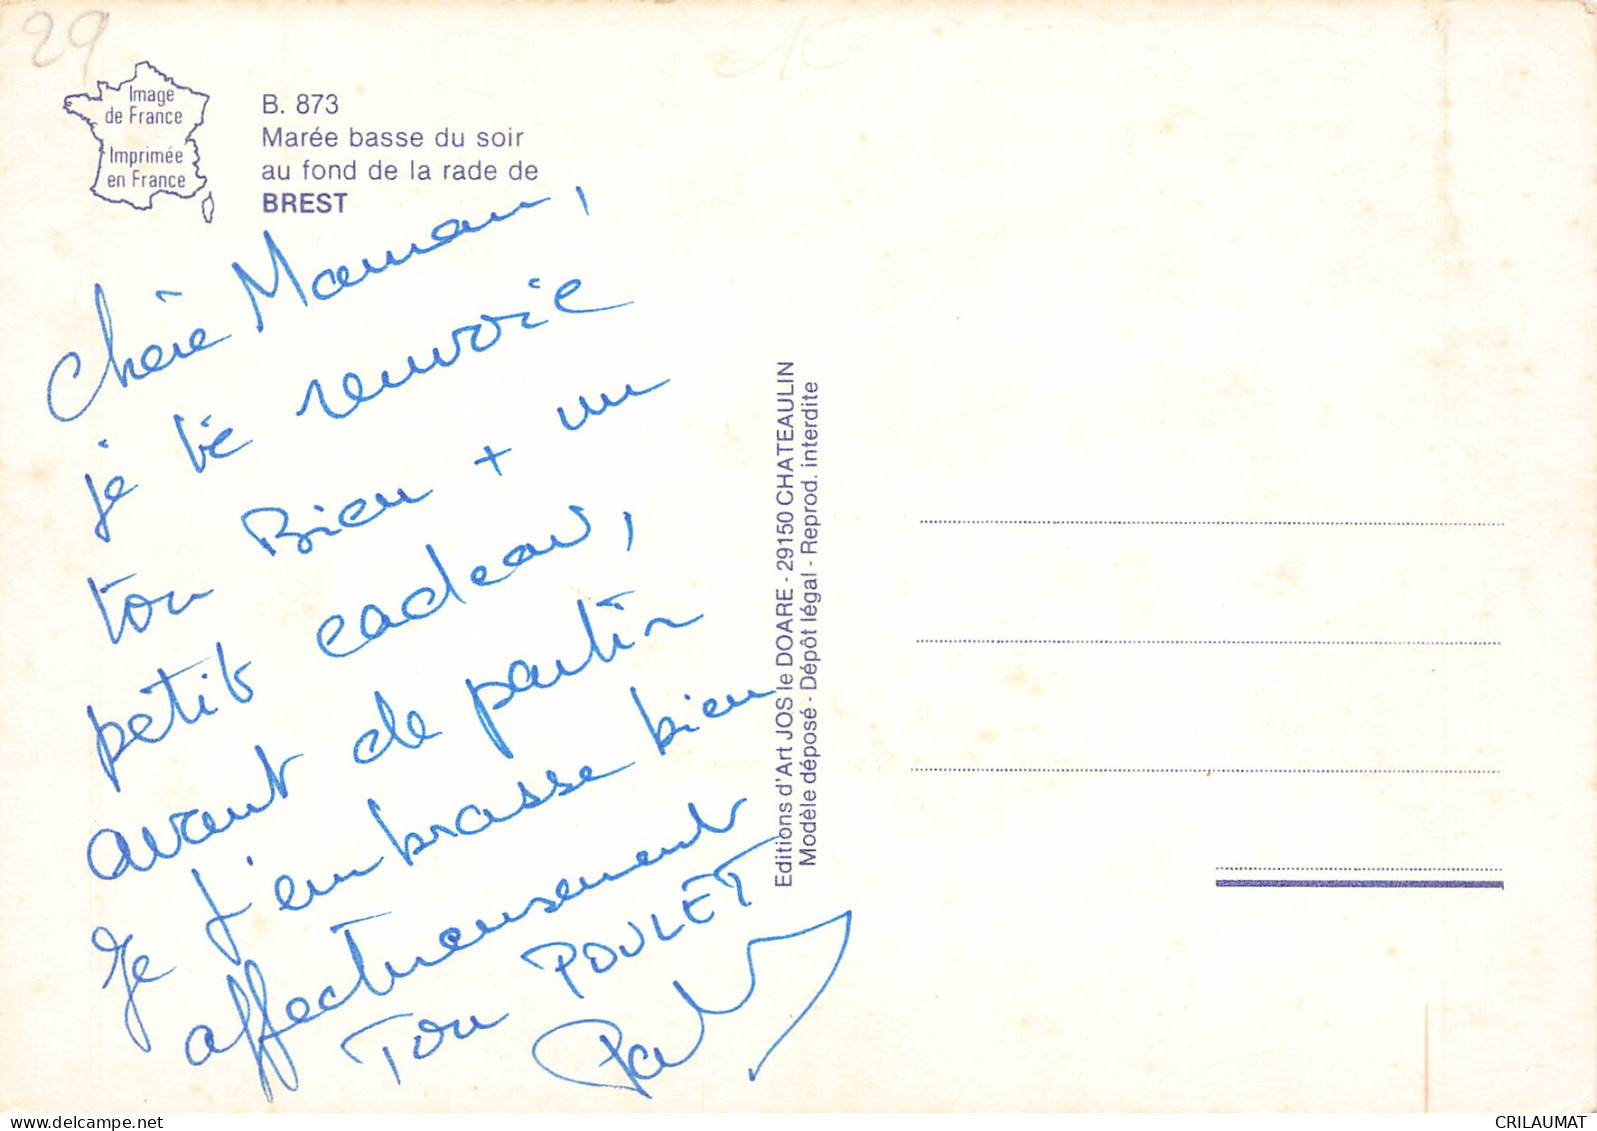 29
Image
de France
Imprimée
en France
B. 873
Marée basse du soir
au fond de la rade de
BREST
Chère Maman,
je te renvoie
ton Bien + un
petit cadeau,
avant de partir
Je t'embrasse bien
affectueusement
Ton POULET
Editions d'Art JOS le DOARE - 29150 CHATEAULIN
Modèle déposé - Dépôt légal - Reprod. interdite
CRILAUMAT